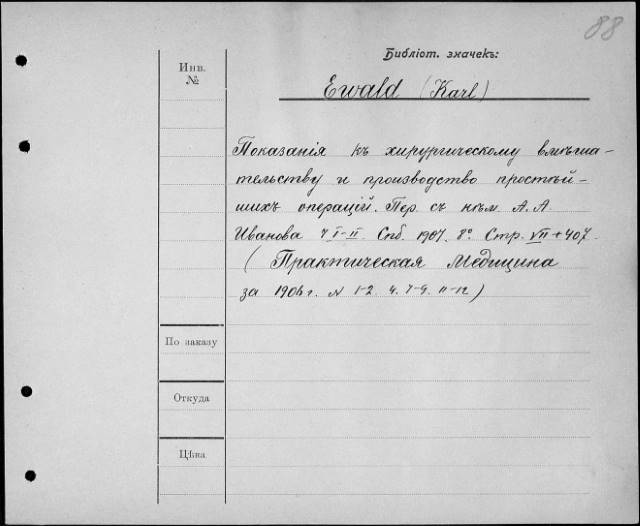 88
Библіот. значекъ:
Инв.
№
Ewald (Karl)
Показанія къ хирургическому вмѣша-
тельству и производство простѣй-
шихъ операцій. Пер. съ нѣм. А. А.
Иванова ч I-II. Спб. 1907. 8º. Стр. VII + 407.
(Практическая Медицина
за 1906 г. N 1-2. 4. 7-9. 11-12)
По заказу
Откуда
Цѣна